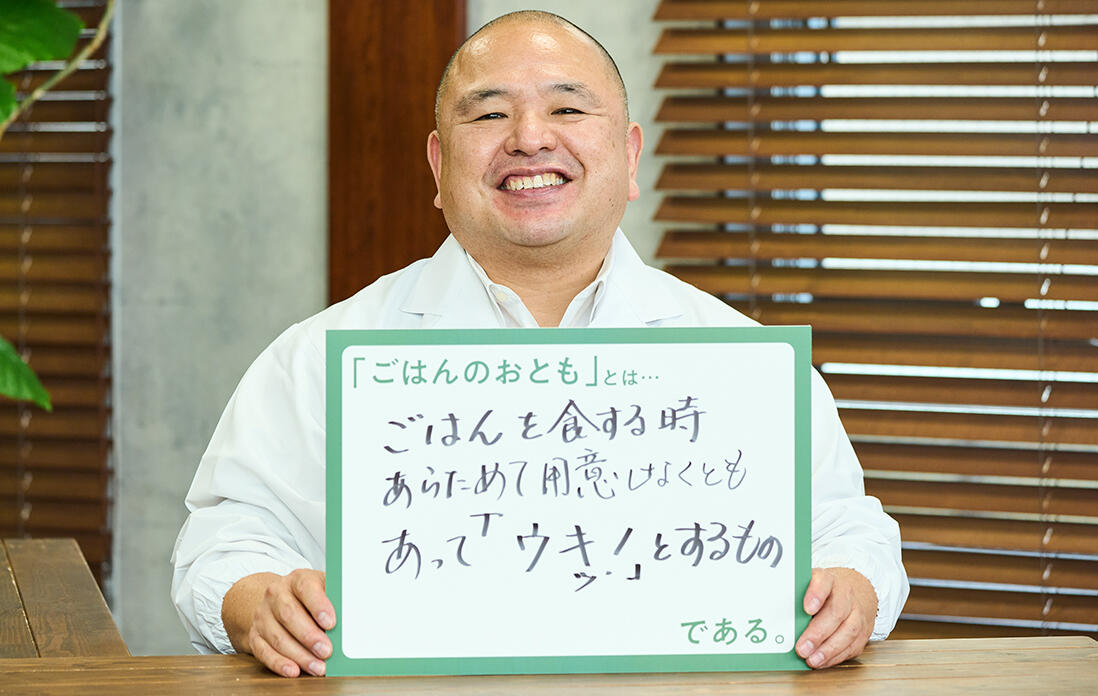 「ごはんのおとも」とは…
ごはんを食する時
あらためて用意しなくとも
あって「ウキッ!」とするもの
である。